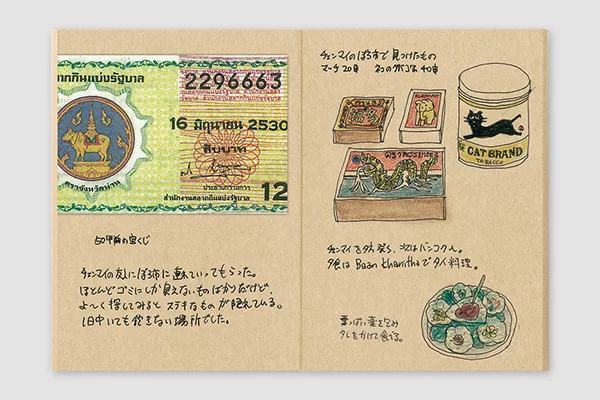 ลากกินแบ่งรัฐบาล
2296663
16 มิถุนายน 2530
สิบบาท
ตราจังหวัดน่าน
ประธานกรรมการ
สำนักงานสลากกินแบ่งรัฐบาล
12
50年前の宝くじ
チェンマイの友にぼろ市に連れていってもらった。
ほとんどゴミにしか見えないものばかりだけど、
よーく探してみるとステキなものが隠れている。
1日中いても飽きない場所でした。
チェンマイのぼろ市で見つけたもの
マーチ20B ネコのタバコ缶 40B
ตราพระยานาค
CAT BRAND
TOBACCO
チェンマイを夕方発ち、次はバンコクへ。
夕食は Baan Khanitha でタイ料理。
葉っぱに葉を包み
タレをかけて食べる。